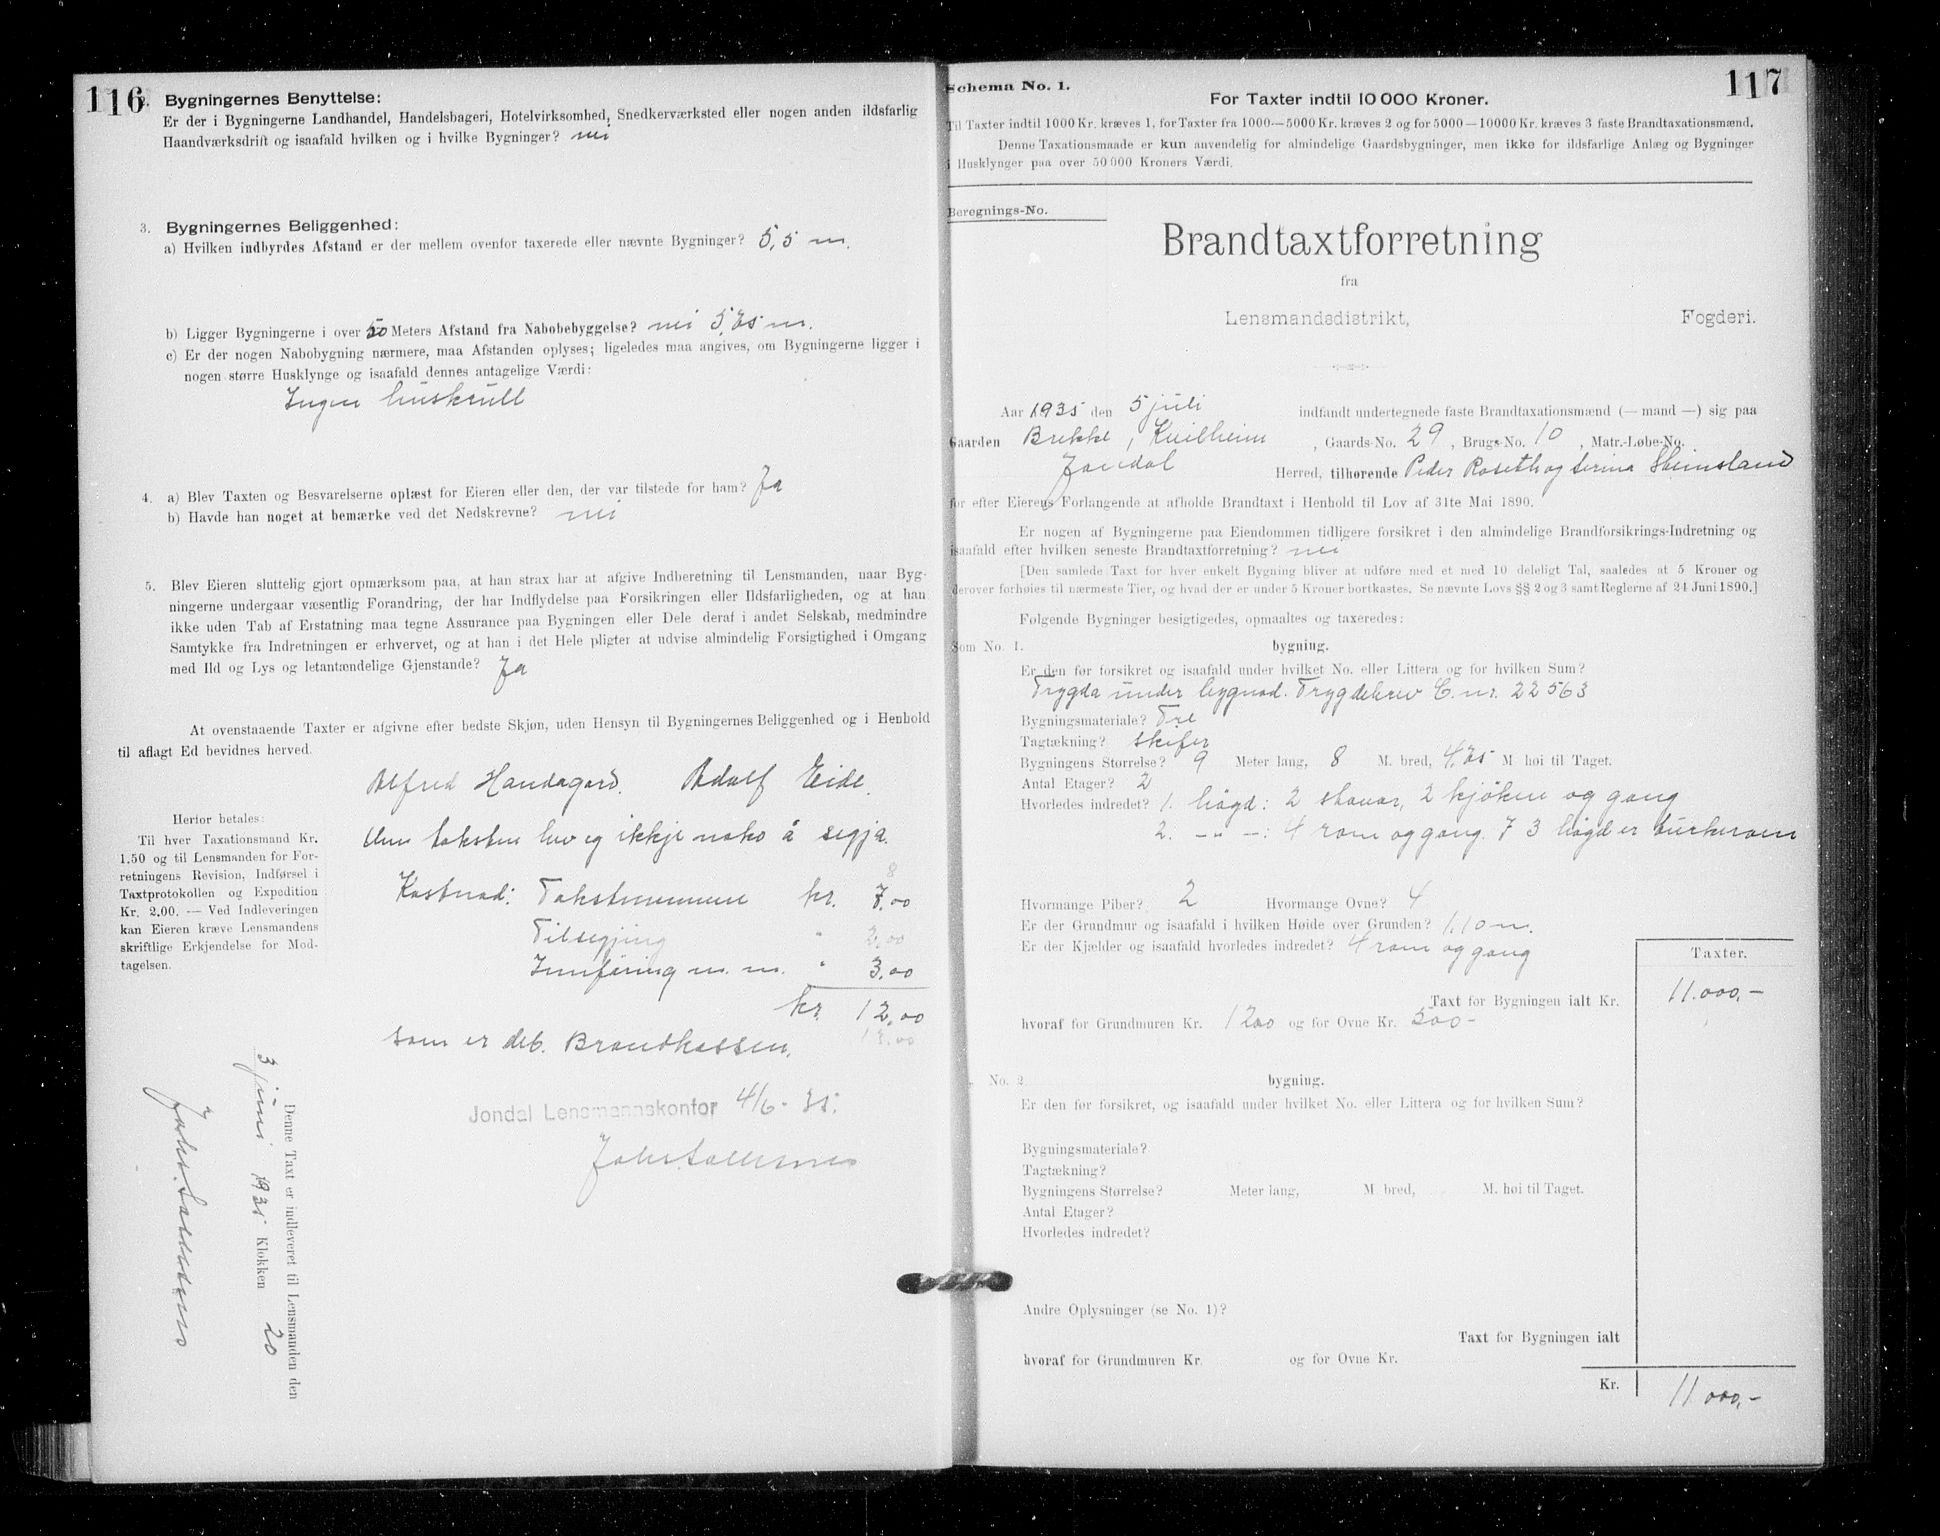 116
2. Bygningernes Benyttelse:
Er der i Bygningerne Landhandel, Handelsbageri, Hotelvirksomhed, Snedkerværksted eller nogen anden ildsfarlig
Haandværksdrift og isaafald hvilken og i hvilke Bygninger? nei
3. Bygningernes Beliggenhed:
a) Hvilken indbyrdes Afstand er der mellem ovenfor taxerede eller nævnte Bygninger? 5,5 m.
b) Ligger Bygningerne i over 50 Meters Afstand fra Nabobebyggelse? nei 5,35 m.
c) Er der nogen Nabobygning nærmere, maa Afstanden oplyses; ligeledes maa angives, om Bygningerne ligger i
nogen større Husklynge og isaafald dennes antagelige Værdi:
Ingen huskrull
4. a) Blev Taxten og Besvarelserne oplæst for Eieren eller den, der var tilstede for ham? Ja
b) Havde han noget at bemærke ved det Nedskrevne? nei
5. Blev Eieren sluttelig gjort opmærksom paa, at han strax har at afgive Indberetning til Lensmanden, naar Byg-
ningerne undergaar væsentlig Forandring, der har Indflydelse paa Forsikringen eller Ildsfarligheden, og at han
ikke uden Tab af Erstatning maa tegne Assurance paa Bygningen eller Dele deraf i andet Selskab, medmindre
Samtykke fra Indretningen er erhvervet, og at han i det Hele pligter at udvise almindelig Forsigtighed i Omgang
med Ild og Lys og letantændelige Gjenstande? Ja
At ovenstaaende Taxter er afgivne efter bedste Skjøn, uden Hensyn til Bygningernes Beliggenhed og i Henhold
til aflagt Ed bevidnes herved.
Alfred Handagard. Adolf Eide.
Um taksten hev eg ikkje noko å segja.
Kostnad: Takstmennene kr. 7,00
8
Tilsegjing " 2,00
Innføring m.m. " 3,00
kr. 12,00
13,00
som er deb. Brandkassen.
Jondal Lensmannskontor 4/6-35.
Herfor betales:
Til hver Taxationsmand Kr.
1.50 og til Lensmanden for For-
retningens Revision, Indførsel i
Taxtprotokollen og Expedition
Kr. 2.00. — Ved Indleveringen
kan Eieren kræve Lensmandens
skriftlige Erkjendelse for Mod-
tagelsen.
Denne Taxt er indleveret til Lensmanden den
3 juni 1935 Klokken 20
117
Schema No. 1.
For Taxter indtil 10 000 Kroner.
Til Taxter indtil 1000 Kr. kræves 1, for Taxter fra 1000—5000 Kr. kræves 2 og for 5000—10000 Kr. kræves 3 faste Brandtaxationsmænd.
Denne Taxationsmaade er kun anvendelig for almindelige Gaardsbygninger, men ikke for ildsfarlige Anlæg og Bygninger
i Husklynger paa over 50 000 Kroners Værdi.
Beregnings-No.
Brandtaxtforretning
fra
Lensmandsdistrikt, Fogderi.
Aar 1935 den 5 juli indfandt undertegnede faste Brandtaxationsmænd (— mand —) sig paa
Gaarden Brekke, Kvilheim, Gaards-No. 29, Brugs-No. 10, Matr.-Løbe-No.
Jondal Herred, tilhørende Peder Roseth og Serina Steinsland
for efter Eierens Forlangende at afholde Brandtaxt i Henhold til Lov af 31te Mai 1890.
Er nogen af Bygningerne paa Eiendommen tidligere forsikret i den almindelige Brandforsikrings-Indretning og
isaafald efter hvilken seneste Brandtaxtforretning? nei
[Den samlede Taxt for hver enkelt Bygning bliver at udføre med et med 10 deleligt Tal, saaledes at 5 Kroner og
derover forhøies til nærmeste Tier, og hvad der er under 5 Kroner bortkastes. Se nævnte Lovs §§ 2 og 3 samt Reglerne af 24 Juni 1890.]
Følgende Bygninger besigtigedes, opmaaltes og taxeredes:
Som No. 1. bygning.
Er den før forsikret og isaafald under hvilket No. eller Littera og for hvilken Sum?
Trygda under bygnad. Trygdebrev C. nr. 22563
Bygningsmateriale? Tre
Tagtækning? skifer
Bygningens Størrelse? 9 Meter lang, 8 M. bred, 4,35 M. høi til Taget.
Antal Etager? 2
Hvorledes indredet? 1. høgd: 2 stovar, 2 kjøken og gang
2. -"-: 4 rom og gang. I 3 høgd er turkerom
Hvormange Piber? 2 Hvormange Ovne? 4
Er der Grundmur og isaafald i hvilken Høide over Grunden? 1,10 m.
Er der Kjælder og isaafald hvorledes indredet? 4 rom og gang
Taxter.
Taxt for Bygningen ialt Kr. 11.000,-
hvoraf for Grundmuren Kr. 1200 og for Ovne Kr. 500-
No. 2 bygning.
Er den før forsikret, og isaafald under hvilket No. eller Littera og for hvilken Sum?
Bygningsmateriale?
Tagtækning?
Bygningens Størrelse? Meter lang, M. bred, M. høi til Taget.
Antal Etager?
Hvorledes indredet?
Andre Oplysninger (se No. 1)?
Taxt for Bygningen ialt
hvoraf for Grundmuren Kr. og for Ovne Kr.
Kr. 11.000,-